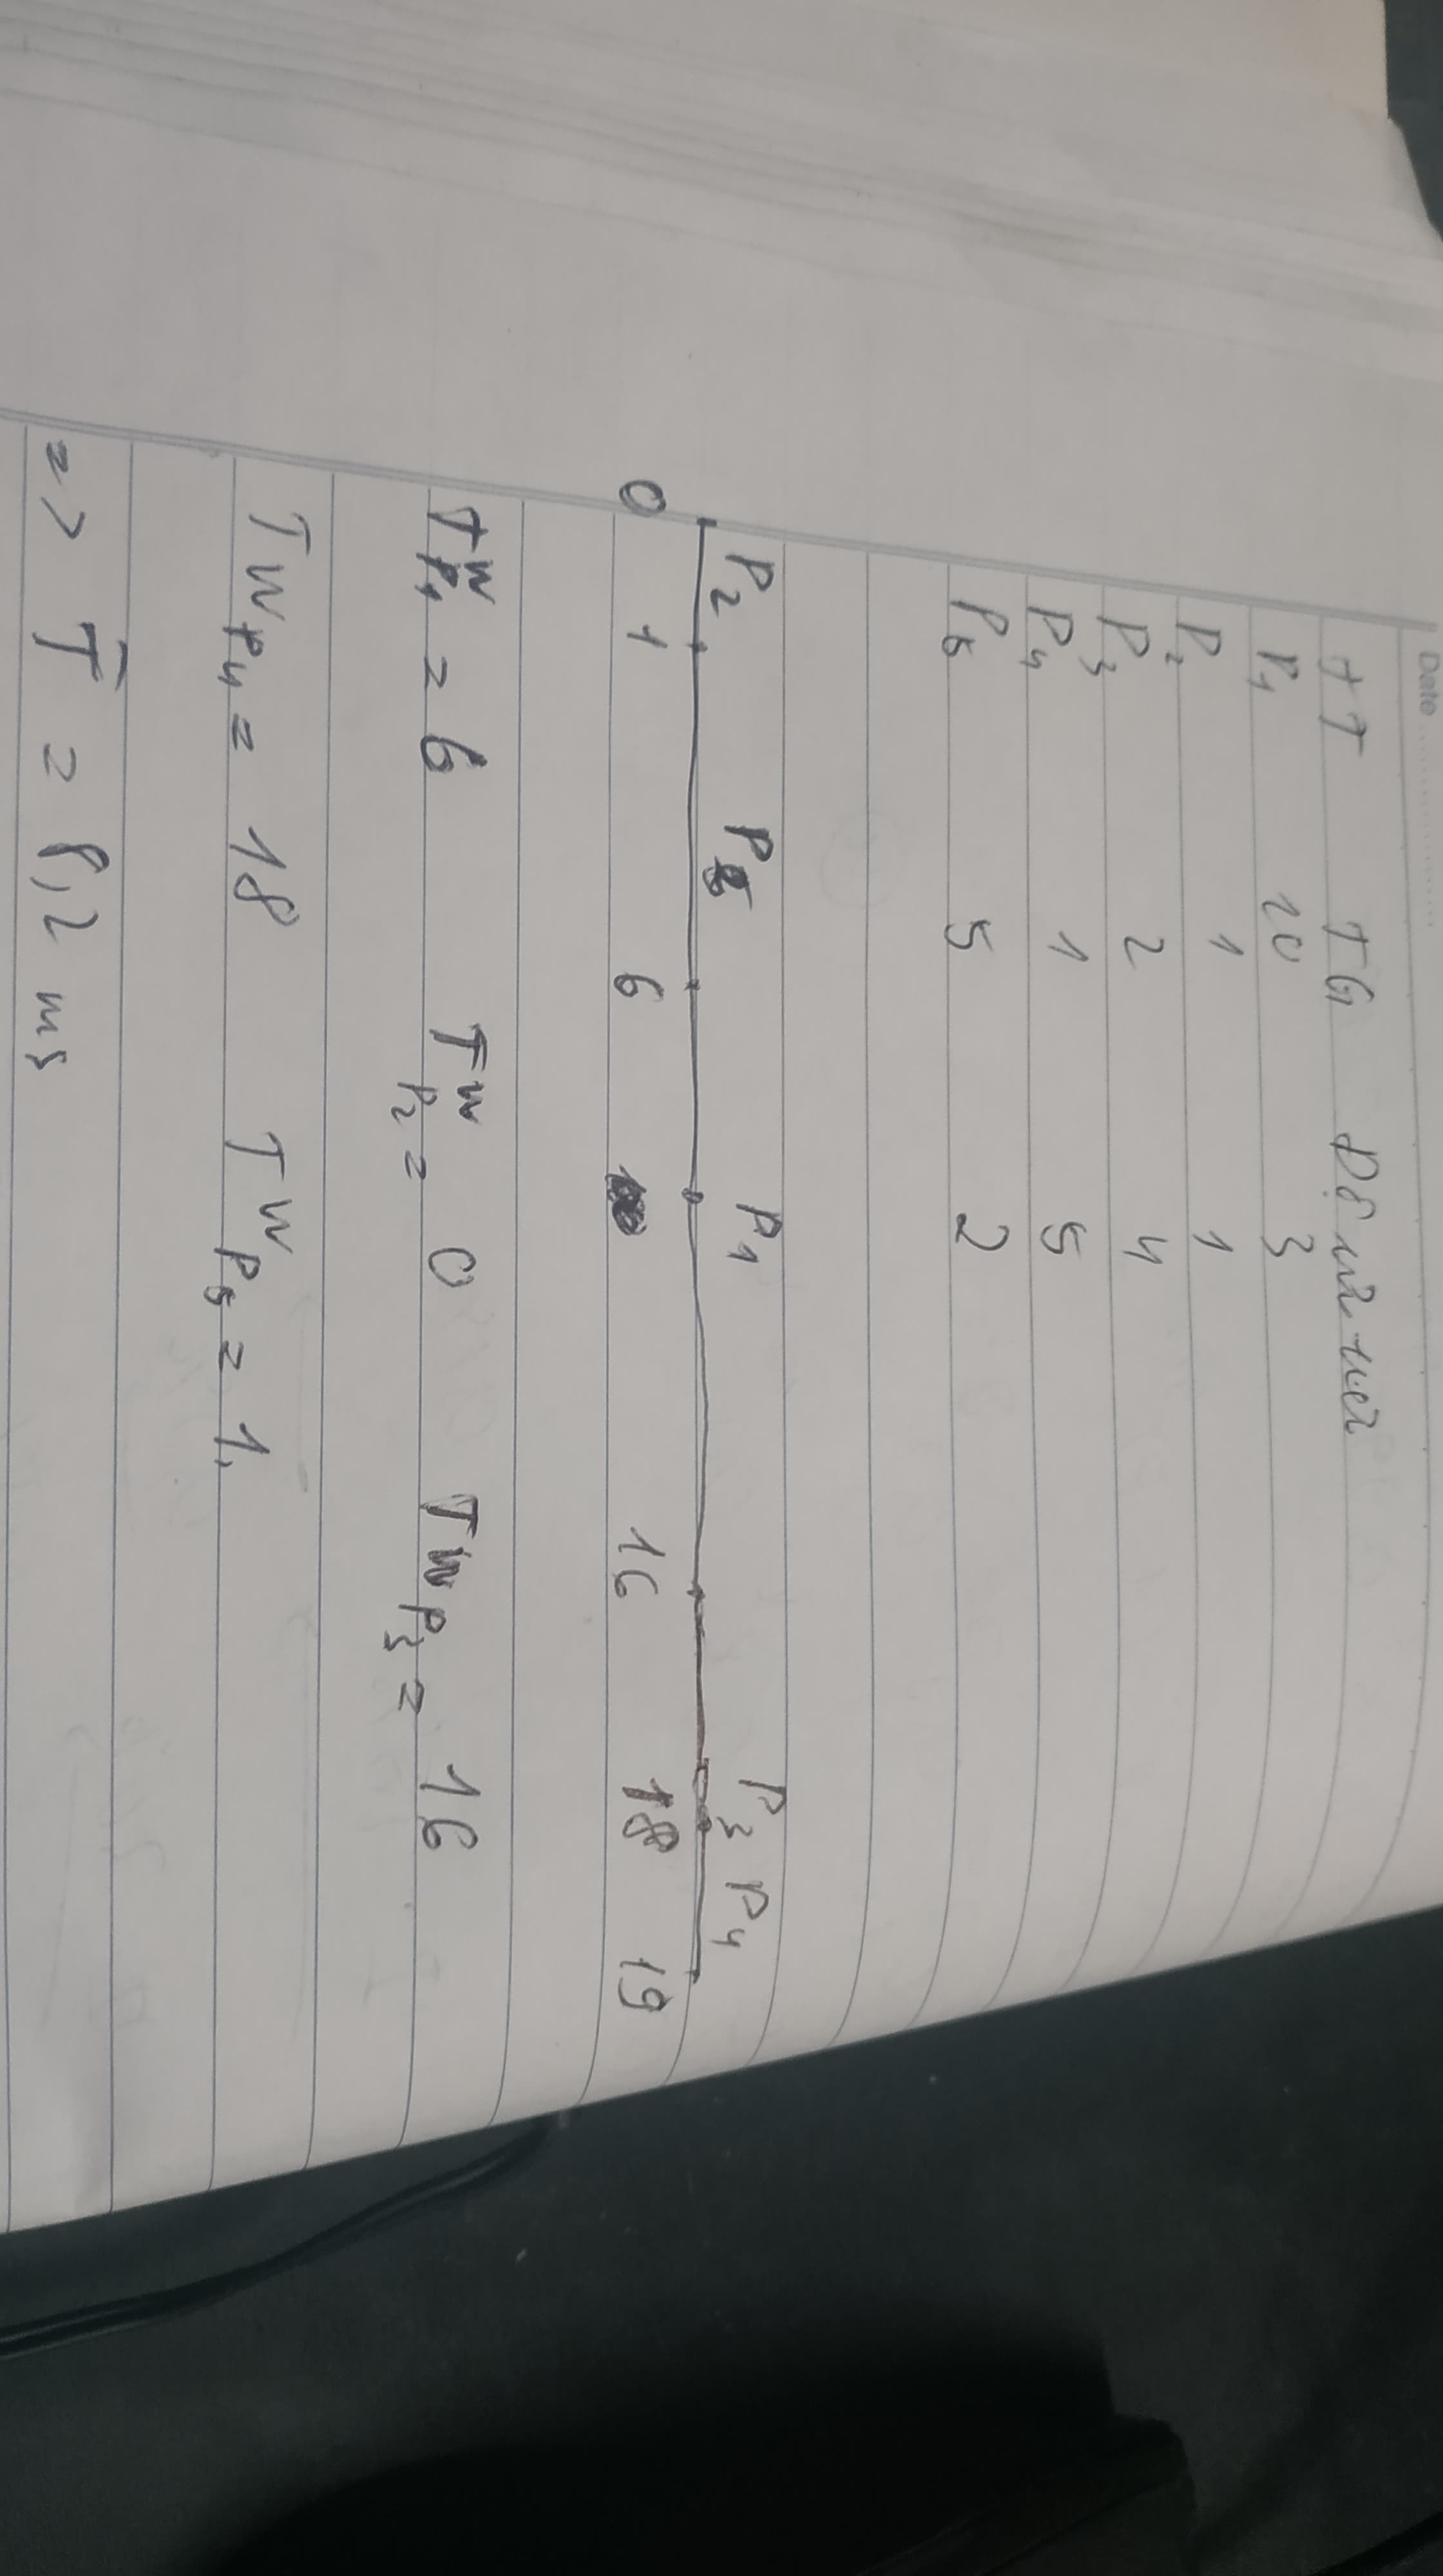 Date
TT TG Độ ưu tiên
P1 10 3
P2 1 1
P3 2 4
P4 1 5
P5 5 2
P2 P5 P1 P3 P4
0 1 6 16 18 19
TW P1 = 6 TW P2 = 0 TW P3 = 16
TW P4 = 18 TW P5 = 1,
=> T̄ = 8,2 ms